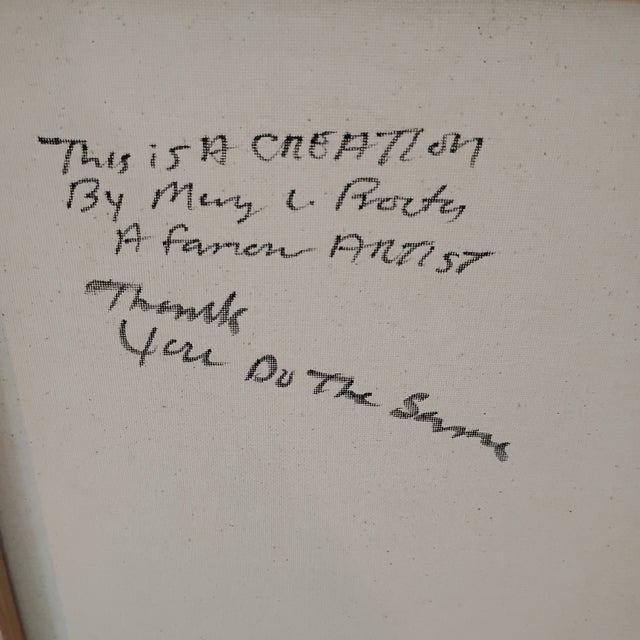 This is A CREATION
By Mary L. Proctor
A famous ARTIST
Thank
You Do The Same